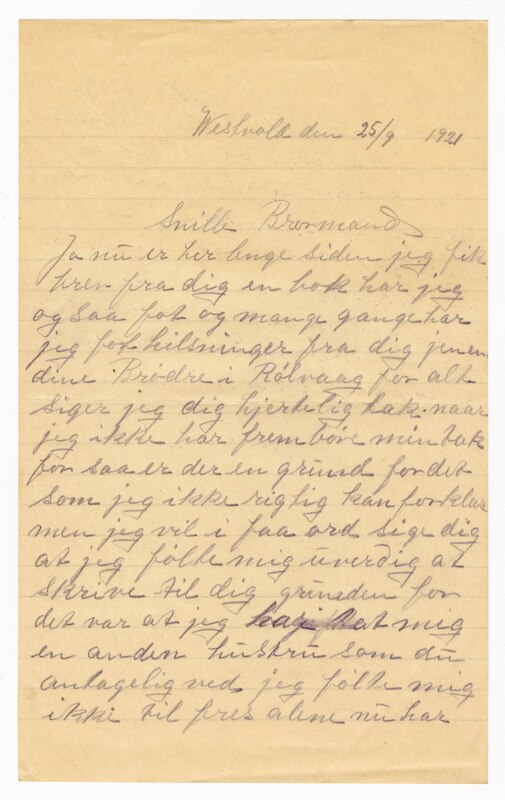 Westvold den 25/9 1921
Snille Brormand
Ja nu er her lenge siden jeg fik
brev fra dig en bok har jeg
og saa fot og mange gange har
jeg fot hilsninger fra dig jenem
dine Brødre i Rølvaag for alt
siger jeg dig hjertelig tak. naar
jeg ikke har frembøre min tak
før saa er der en grund for det
som jeg ikke rigtig kan forklar
men jeg vil i faa ord sige dig
at jeg følte mig uverdig at
skrive til dig grunden for
det var at jeg mig
en anden hustru som du
antagelig ved jeg følte mig
ikke til fres alene nu har